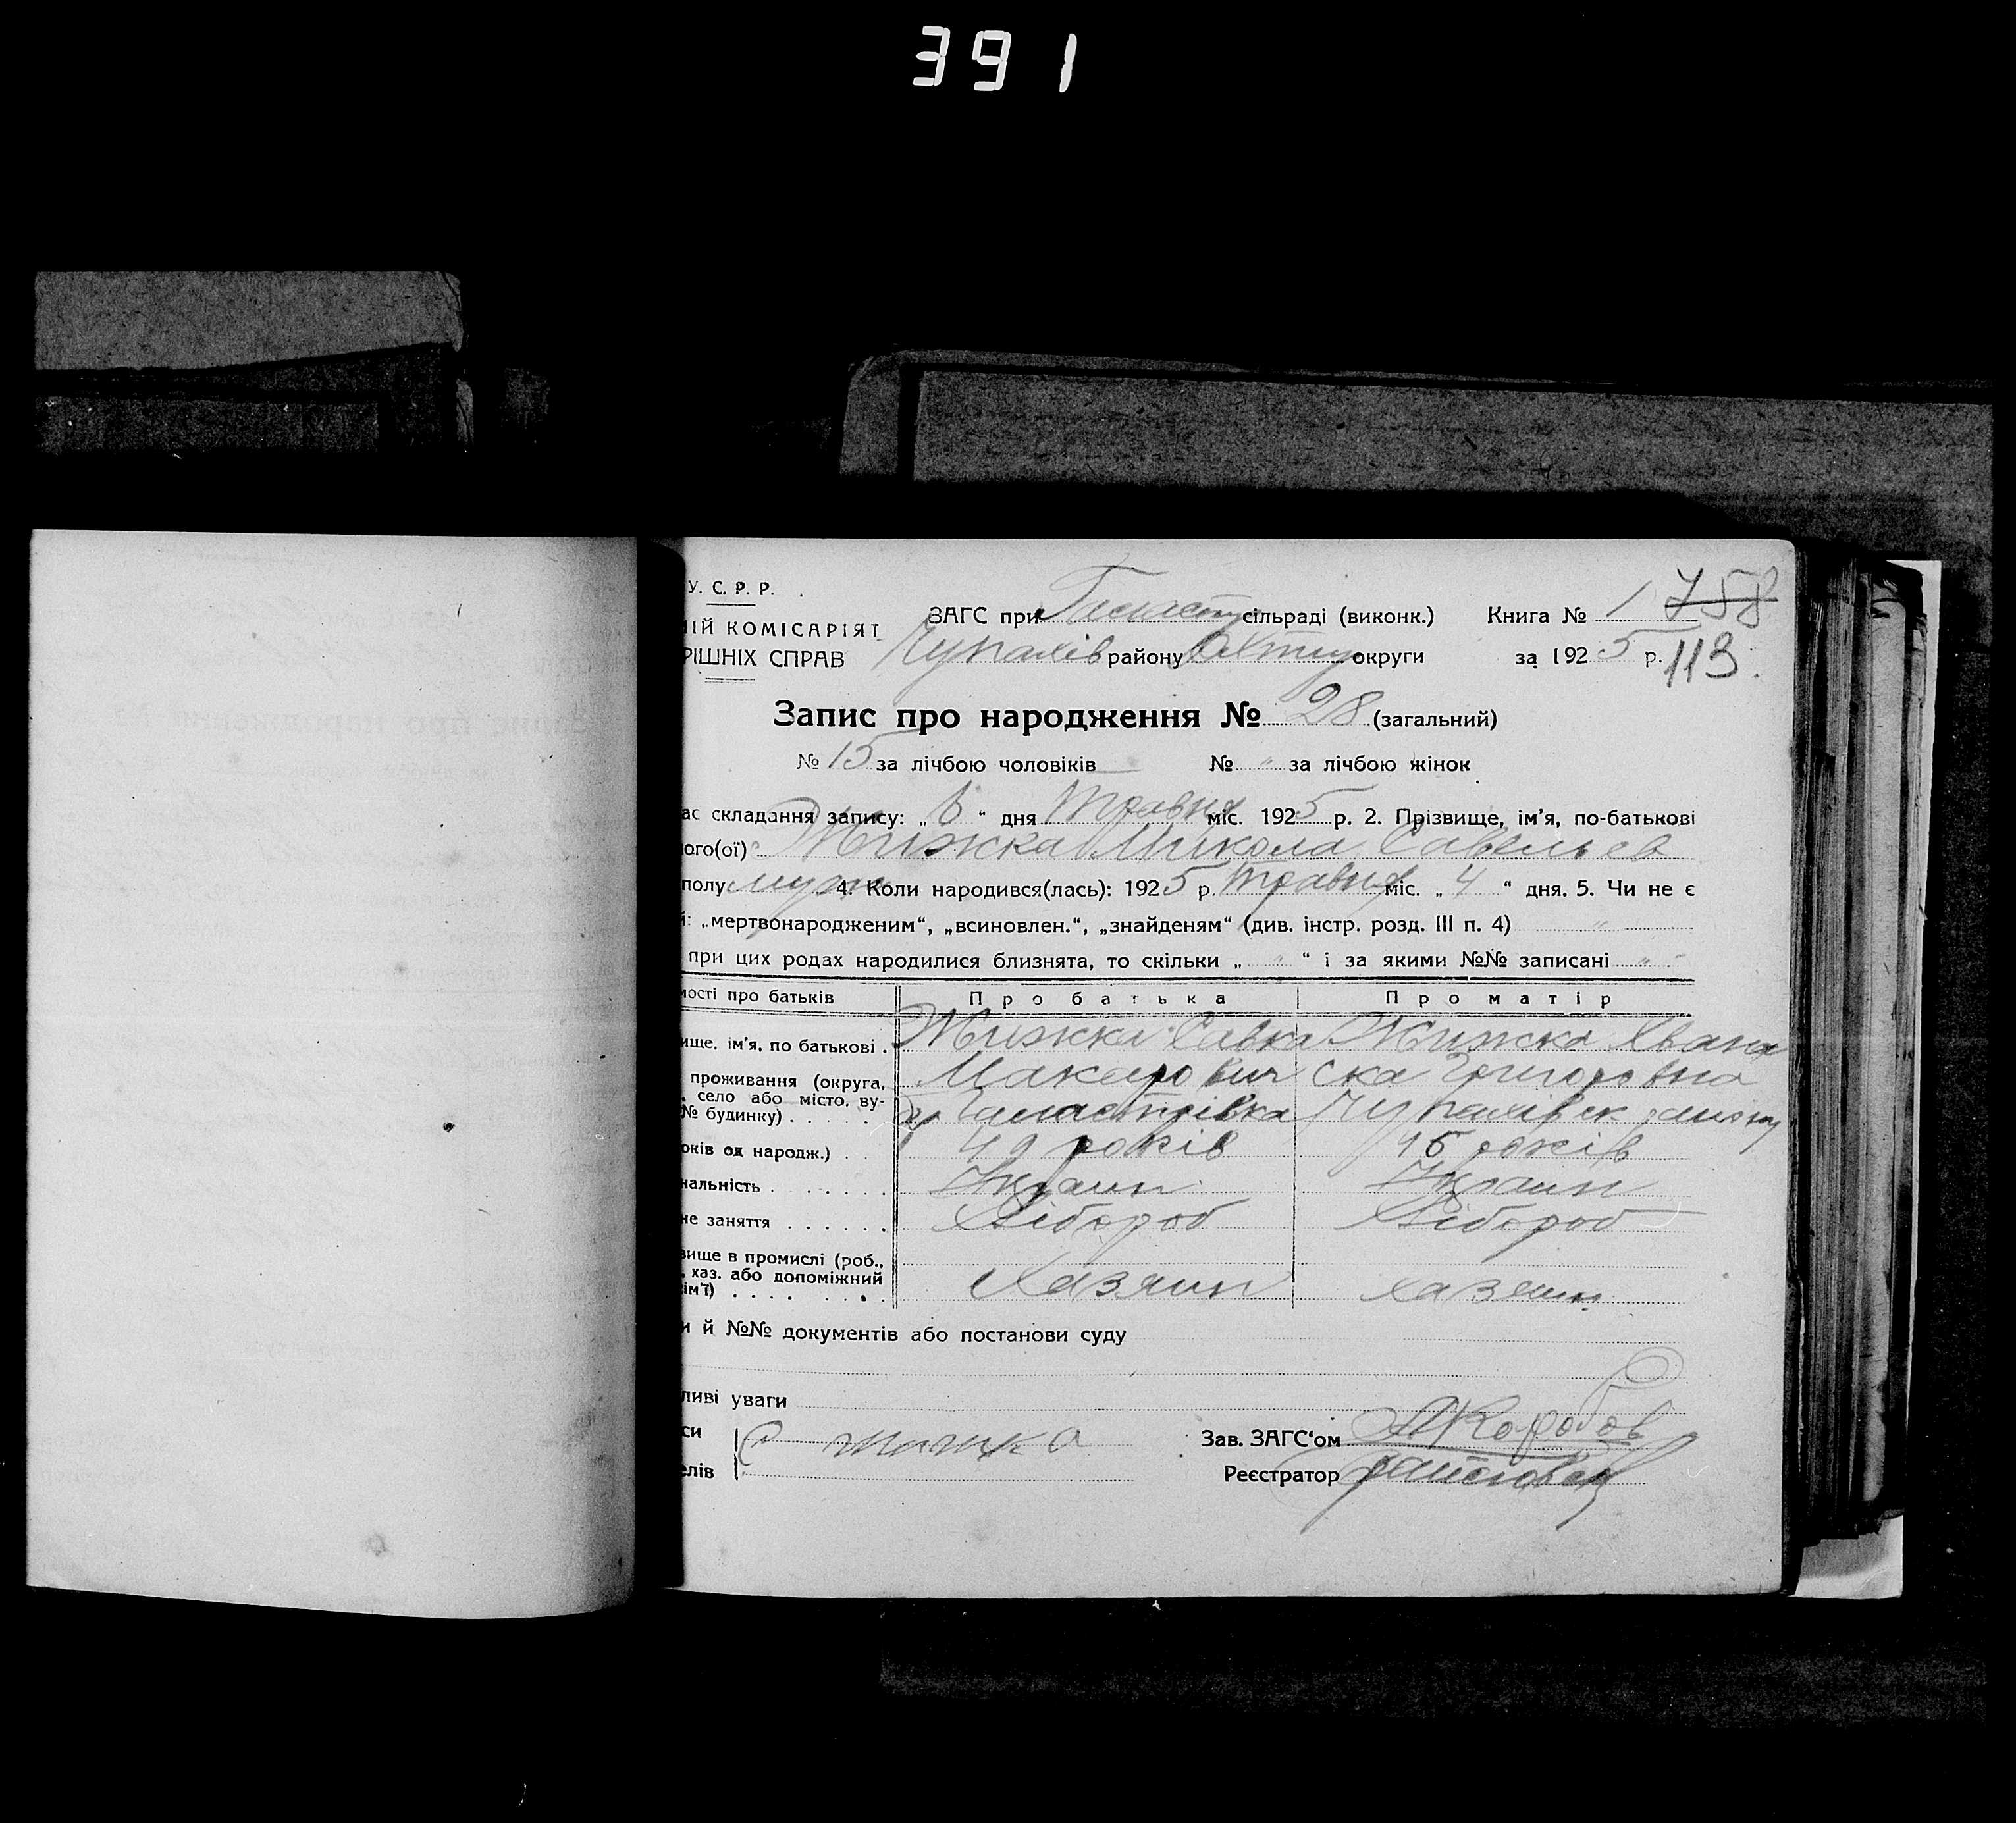 391
У. С. Р. Р.
ЗАГС при сільраді (виконк.) Книга № 1 758
ІЙ КОМІСАРІЯТ
РІШНІХ СПРАВ Чупахів району Охтир округи за 1925 р. 113.
Запис про народження № 28 (загальний)
№ 15 за лічбою чоловіків № " за лічбою жінок
ас складання запису: „ 6 “ дня Травня міс. 1925 р. 2. Прізвище, ім'я, по-батькові
ого(ої) Жижка Микола Савельев
полу муж 4. Коли народився(лась): 1925 р. Травня міс. „ 4 “ дня. 5. Чи не є
й: „мертвонародженим“, „всиновлен.“, „знайденям“ (див. інстр. розд. III п. 4) "
при цих родах народилися близнята, то скільки „ " “ і за якими №№ записані "
мості про батьків Про батька Про матір
ище, ім'я, по батькові . Жижка Савка Жижка Явана
Макарович ска Григоровна
проживання (округа,
село або місто, ву-
№ будинку) . . . . . Чупахівск району
оків од народж.) . . 49 років 45 років
нальність . . . . . . . Украин Украин
не заняття . . . . . . Хлібороб Хлібороб
вище в промислі (роб.,
. хаз. або допоміжний
ім'ї) . . . . . . Хазяин хазяин
и й №№ документів або постанови суду
ливі уваги
си
елів
Зав. ЗАГС‘ом АКоробов
Реєстратор